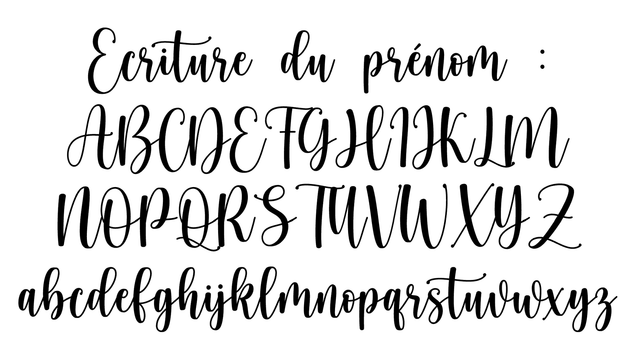 Ecriture du prénom :
ABCDEFGHIJKLM
NOPQRSTUVWXYZ
abcdefghijklmnopqrstuvwxyz